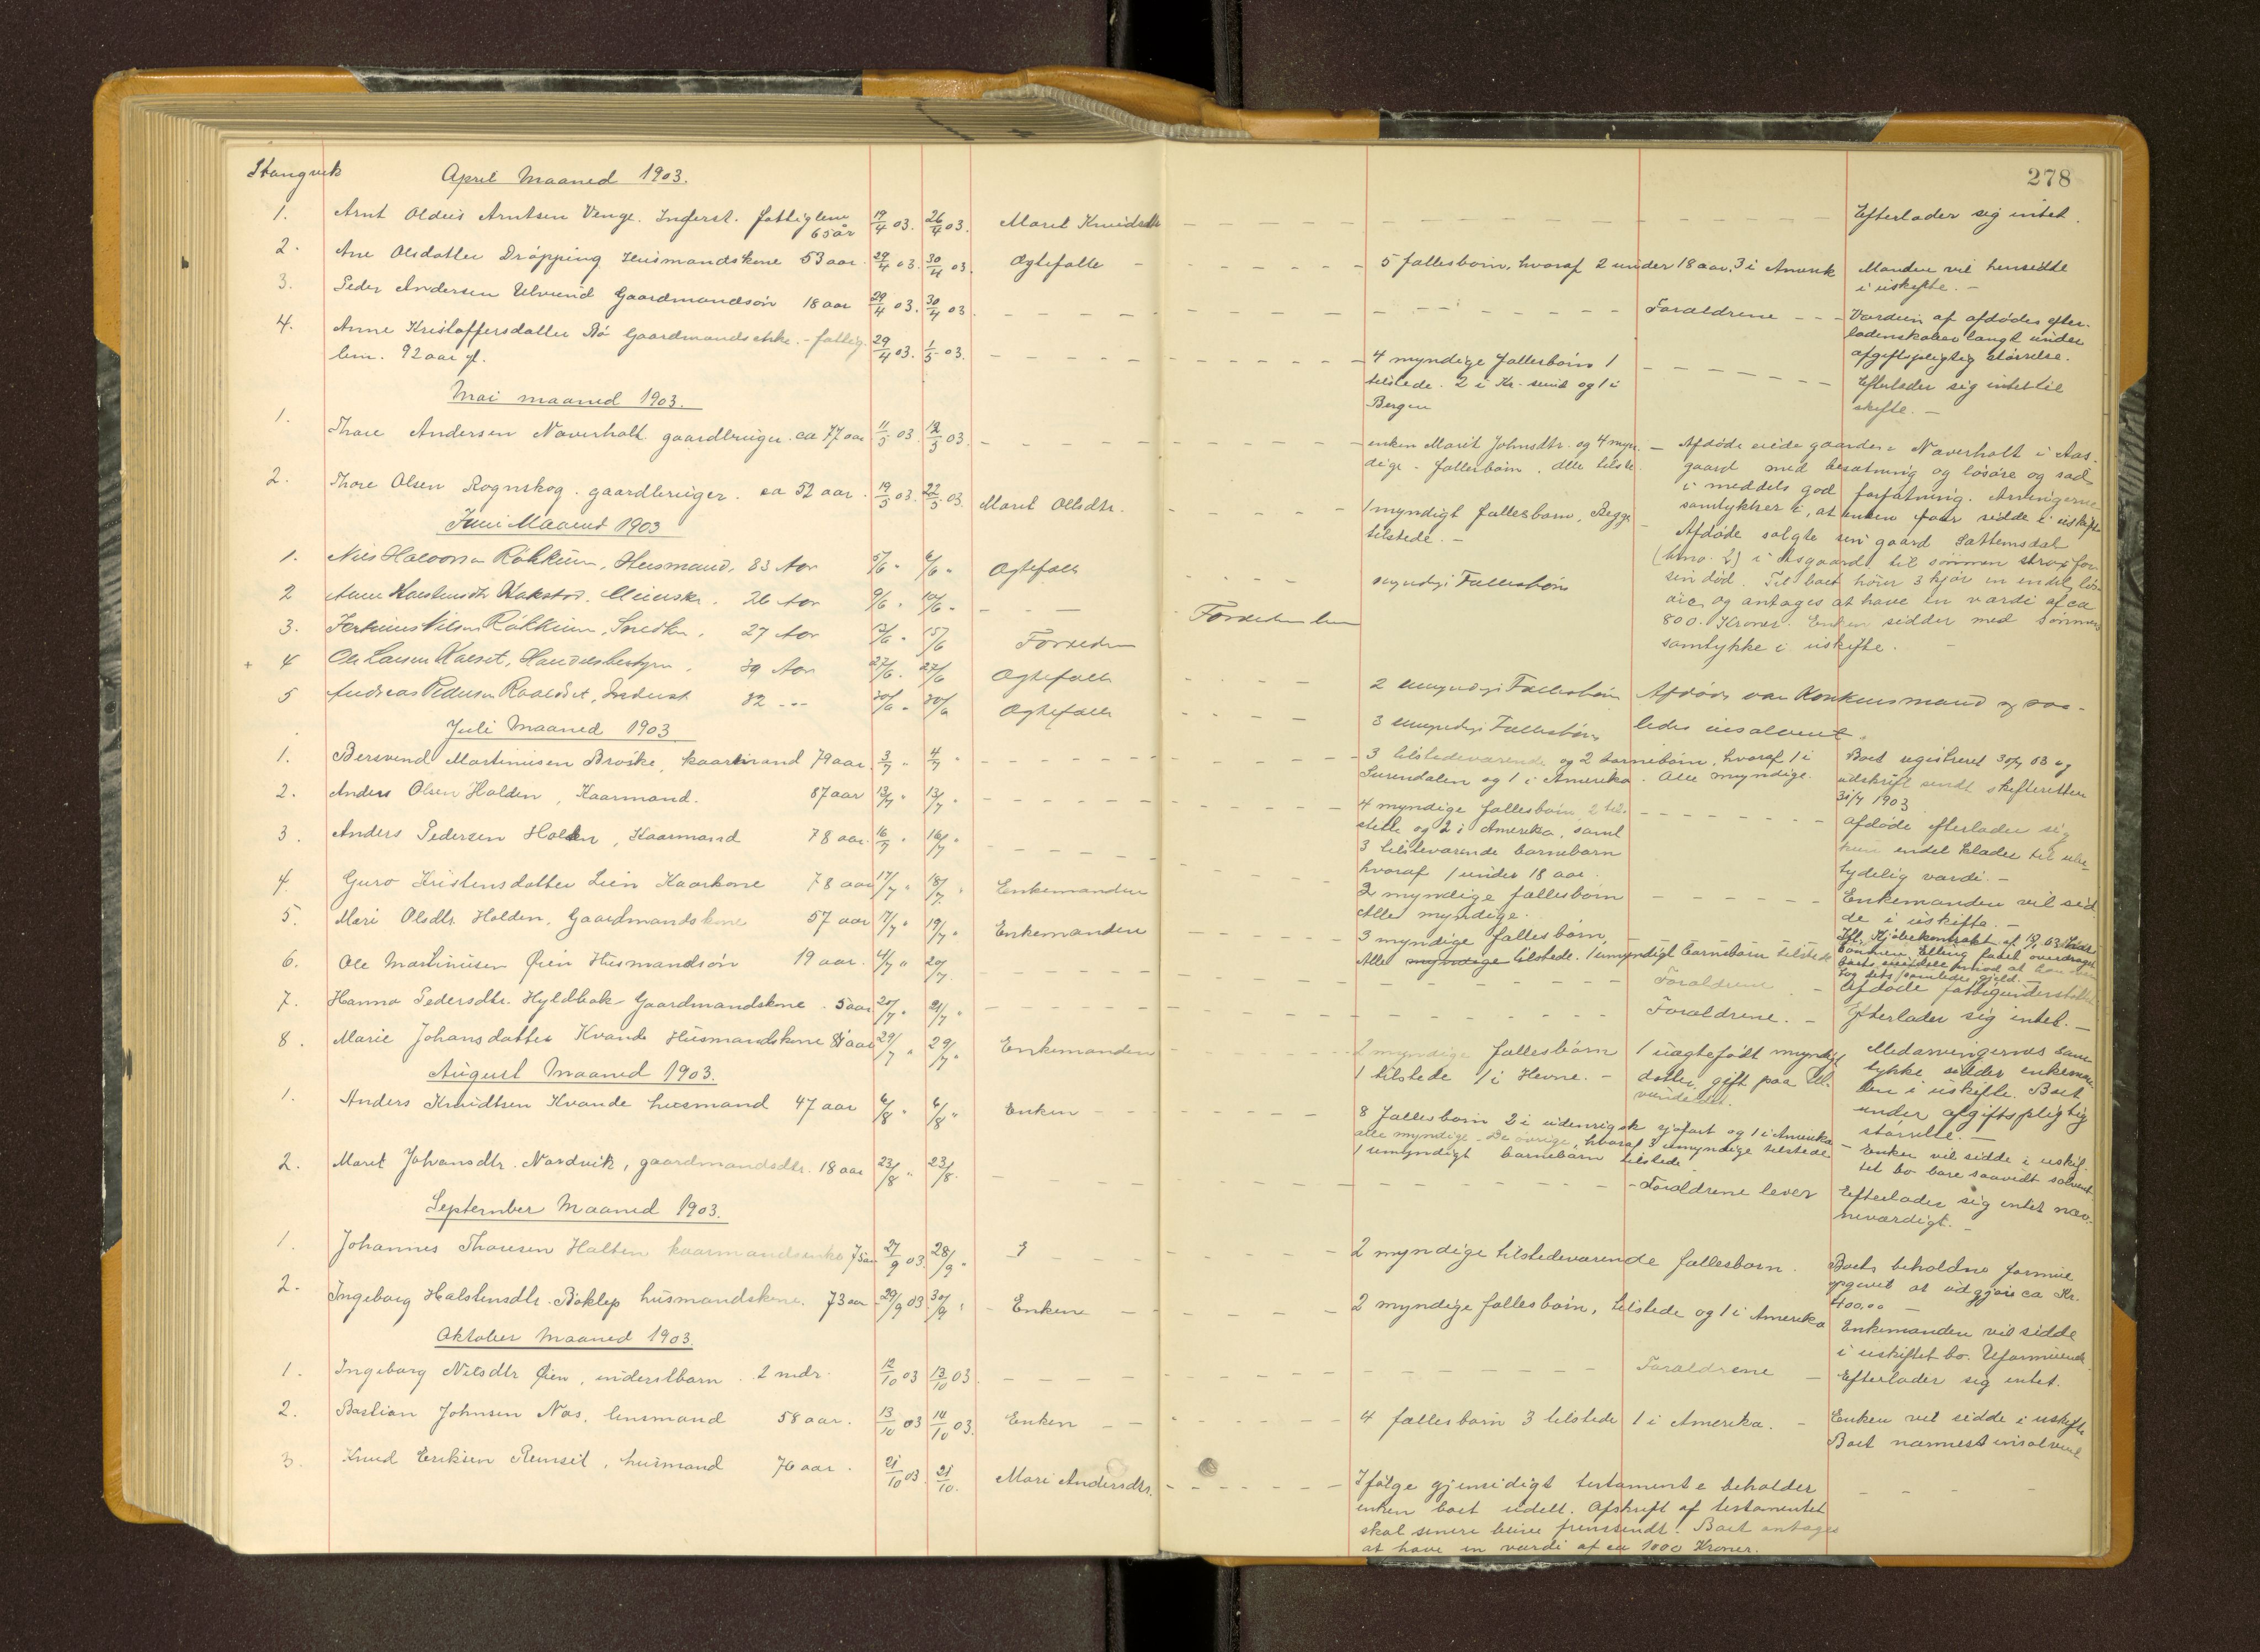 278
Stangvik
April Maaned 1903.
1. Arnt Oldeis Arntsen Venge. Inderst. fattiglem 65 år 19/4 03. 26/4 03. Marit Knudsdtr Efterlader sig intet.
2. Ane Olsdatter Drøpping Husmandskone 53 aar. 29/4 03. 30/4 03. Ægtefælle
5 fællesbørn, hvoraf 2 under 18 aar, 3 i Amerik
Manden vil hensidde
i uskifte. –
3. Peder Andersen Ulvund Gaardmandsøn 18 aar 29/4 03. 30/4 03
Forældrene
Værdien af afdødes efter-
ladenskaber langt under
afgiftspligtig størrelse.
4. Anne Kristoffersdatter Bø Gaardmandsenke. - fattig 29/4 03. 1/5 03.
lem. 92 aar gl.
4 myndige fællesbørn 1
tilstede. 2 i Kr.sund og 1 i
Bergen
Efterlader sig intet til
skifte. –
Mai maaned 1903.
1. Thore Andersen Naverholt gaardbruger. ca 77 aar 11/5 03. 12/5 03.
enken Marit Johnsdtr. og 4 myn-
dige fællesbørn, alle tilste.
Afdøde eiede gaarden Naverholt i Aas-
gaard med besætning og løsøre og sæd
i meddels god forfatning. Arvingerne
samtykker i, at enken faar sidde i uskifte
2. Thore Olsen Rognskog. gaardbruger. ca 52 aar. 19/5 03. 22/5 03. Marit Olsdtr.
1 myndigt fællesbarn, Begge
tilstede. –
Afdøde solgte sin gaard Sættemsdal
(bno. 2) i Aasgaard til sønnen strax før
sin død. Til boet hører 3 kjør en endel løs
øre og antages at have en værdi af ca
800. Kroner. Enken sidder med sønnens
samtykke i uskifte.
Juni Maaned 1903
1. Nils Halvorsen Røkkum, Husmand, 83 Aar 5/6 " 6/6 " Ægtefælle
myndige Fællesbørn
2 Anne Karstensdtr Kakstad. Meierske. 26 Aar 9/6 . 10/6 -
Forældrene lever
3. Nilsen Røkkum, Snedker. 27 Aar 13/6 " 15/6 Forældre
+ 4 Ole Larsen Kalset, Handelsbestyrer. 39 Aar 27/6. 27/6 Ægtefælle
2 umyndige Fællesbørn
Afdøde var Konkursmand og saa-
ledes insolvent.
5 Andreas Pedersen Raaldset, Inderst 82 -- 30/6 " 30/6 Ægtefælle
3 umyndige Fællesbørn
Juli Maaned 1903
1. Bersvend Martinusen Brøske, kaarmand 79 aar. 3/7 " 4/7 "
3 tilstedeværende og 2 barnebørn, hvoraf 1 i
Surendalen og 1 i Amerika. Alle myndige.
Boet registreret 30/7 03 og
udskrift sendt skifteretten
31/7 1903
2. Anders Olsen Halden, Kaarmand. 87 aar 13/7 " 13/7 "
4 myndige fællesbørn, 2 til-
stede og 2 i Amerika, samt
3 tilsteværende barnebarn
hvoraf 1 under 18 aar.
Afdøde efterlader sig
kun endel klæder til ube-
tydelig værdi. –
3. Anders Pedersen Halden, Kaarmand 78 aar. 16/7 " 16/7 "
4. Guro Kristensdatter Lien Kaarkone 78 aar 17/7 " 18/7 " Enkemanden
2 myndige fællesbørn
Alle myndige.
Enkemanden vil sid
de i uskifte. –
5. Mari Olsdtr. Halden, Gaardmandskone 57 aar 17/7 " 19/7 " Enkemanden
3 myndige fællesbørn
Alle myndige tilstede. 1 umyndigt barnebarn tilstede
Ifl. Kjøbekontrakt af
sønnen Elling faael overdraget
boets mod at han over
tog dets samlede gjeld. –
6. Ole Martinusen Øien Husmandsøn 19 aar. 4/7 " 20/7.
Forældrene
Afdøde fattigunderstøttet
7. Hanna Pedersdtr. Hyldbak Gaardmandskone. 5 aar 20/7 " 21/7 "
Forældrene. –
Efterlader sig intet. –
8. Marie Johansdatter Kvande Husmandskone 81 aar 29/7 " 29/7 " Enkemanden
2 myndige fællesbørn
1 tilstede 1 i Hevne. –
1 uægtefødt myndig
datter, gift paa Ul-
vundeidet.
Medarvingernes sam-
tykke sidder enkeman
den i uskifte. Boet
under afgiftspligtig
størrelse. –
August Maaned 1903.
1. Anders Knudtsen Kvande husmand 47 aar 6/8 " 6/8 " Enken
8 fællesbørn 2 i udenrigsk sjøfart og 1 i Amerika
alle myndige - De øvrige, hvoraf 3 umyndige tilstede
1 umyndigt barnebarn tilstede
Enken vil sidde i uskif-
tet bo bare saavidt solvent
2. Marit Johansdtr. Nordvik, gaardmandsdtr. 18 aar 23/8 " 23/8.
Forældrene lever
Efterlader sig intet næv-
neværdigt. –
September Maaned 1903.
1. Johannes Thoresen Halten kaarmandsenke 75 aar 27/9 03. 28/9 "
2 myndige tilstedeværende fællesbørn.
Boets beholdne formue
opgivet at udgjøre ca Kr.
400.00 –
2. Ingeborg Halstensdtr. Bøklep husmandskone. 73 aar 29/9 03. 30/9 " Enkene
2 myndige fællesbørn, tilstede og 1 i Amerika
Enkemanden vil sidde
i uskiftet bo. Uformuende
Oktober Maaned 1903.
1. Ingeborg Nilsdtr Øien, inderstbarn. 2 mdr. 12/10 03 13/10 03.
Forældrene
Efterlader sig intet.
2. Bastian Johnsen Næs, lensmand 58 aar. 13/10 03 14/10 03. Enken
4 fællesbørn 3 tilstede 1 i Amerika.
Enken vil sidde i uskifte
Boet nærmest insolvent
3. Knud Eriksen Remset, husmand 76 aar. 21/10 03 21/10. Mari Andersdtr.
Ifølge gjensidigt testamente beholder
enken boet udelt. Afskrift af testamentet
skal senere blive fremsendt. Boet antages
at have en værdi af ca 1000 Kroner.